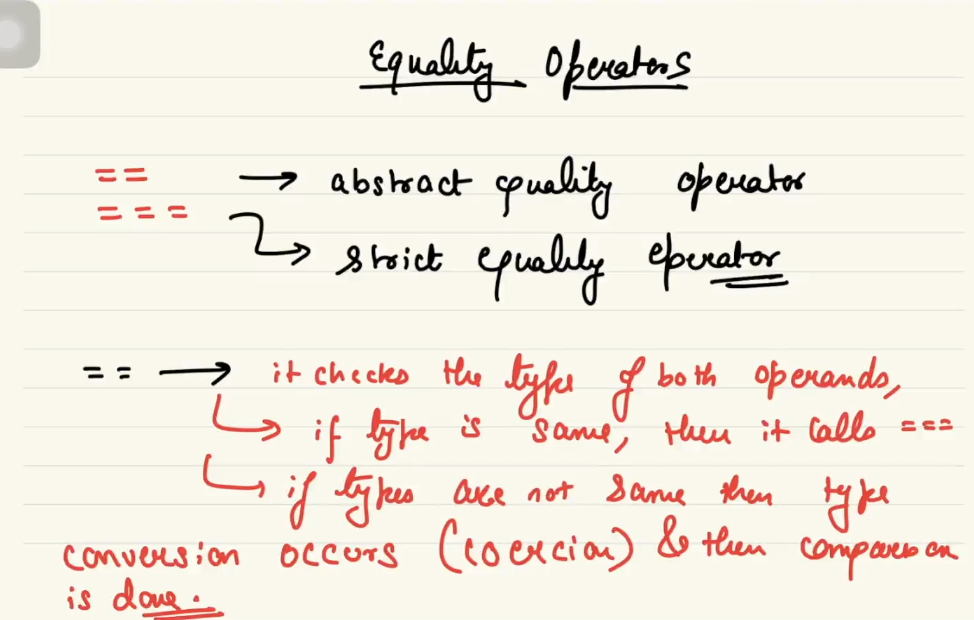 Equality Operators
== → abstract equality operator
=== → strict equality operator
== → it checks the type of both operands,
→ if type is same, then it calls ===
→ if types are not same then type
conversion occurs (coercion) & then comparison
is done.